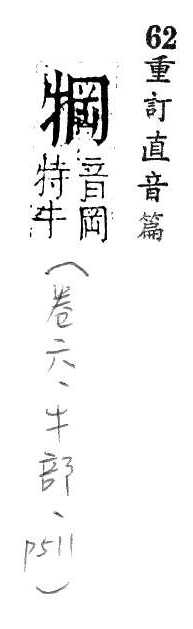 62重訂直音篇
犅
音岡
特牛
(卷六、牛部、p511)